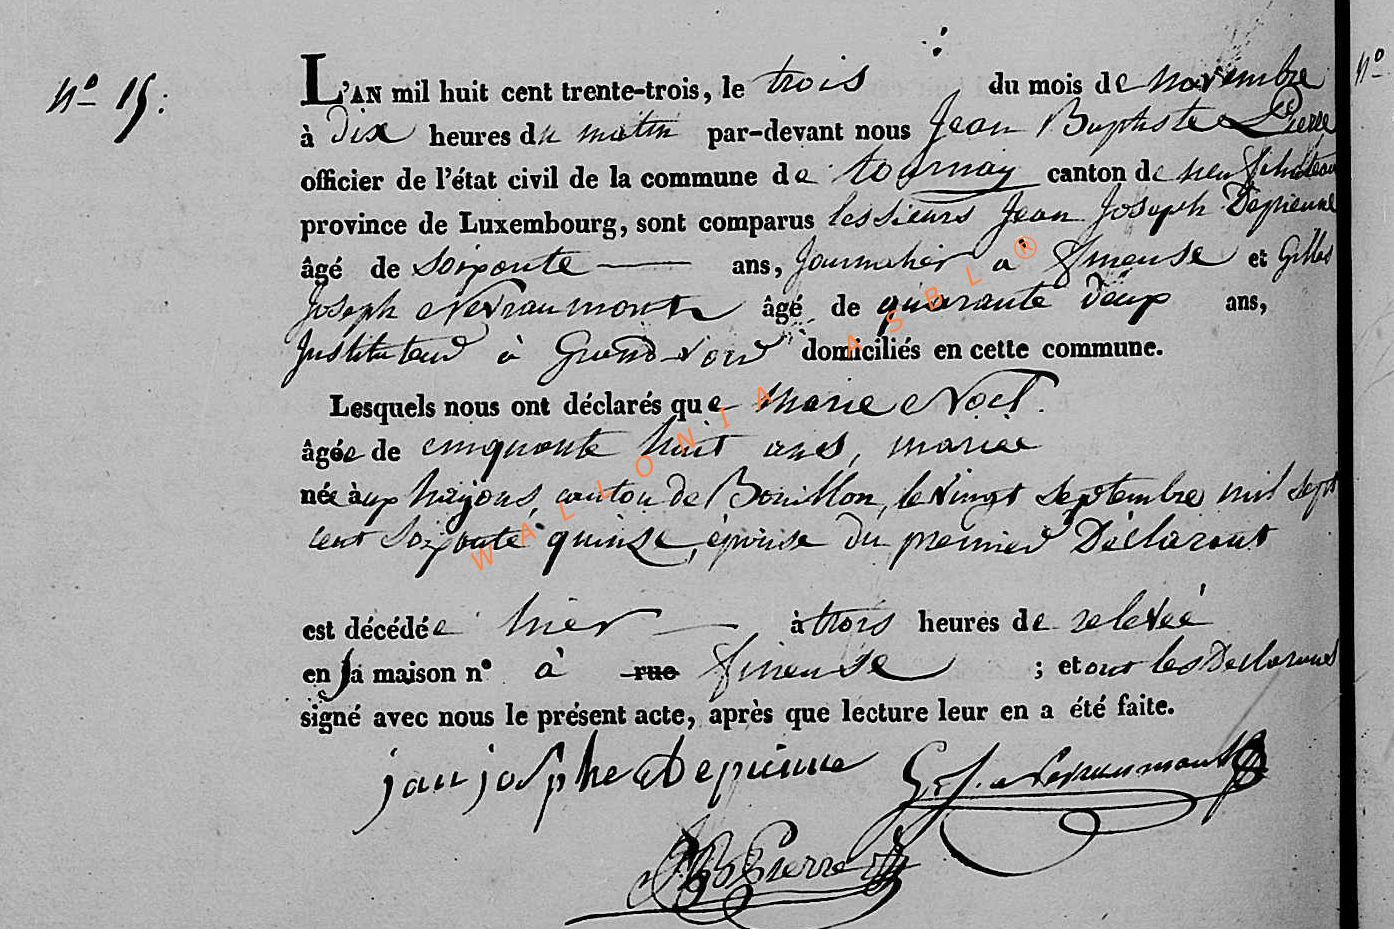 nº 15:
L'AN mil huit cent trente-trois, le trois du mois de novembre
à dix heures du matin par-devant nous Jean Baptiste Pierre
officier de l'état civil de la commune de tournay canton de neufchateau
province de Luxembourg, sont comparus les sieurs Jean Joseph Depienne
âgé de soixante ans, journalier à fineuse et Gilles
Joseph Nevraumont âgé de quarante deux ans,
Instituteur à Grand-voir domiciliés en cette commune.
Lesquels nous ont déclarés que Marie Noel.
âgée de cinquante huit ans, mariée
née aux hayons, canton de Bouillon, le vingt septembre mil sept
cent soixante quinze, épouse du premier Déclarant
est décédée hier à trois heures de relevée
en sa maison nº à rue fineuse ; et ont les Déclarants
signé avec nous le présent acte, après que lecture leur en a été faite.
jan josphe Depienne G. J. Nevraumont
JB Pierre
nº
WALLONIA ASBL ®